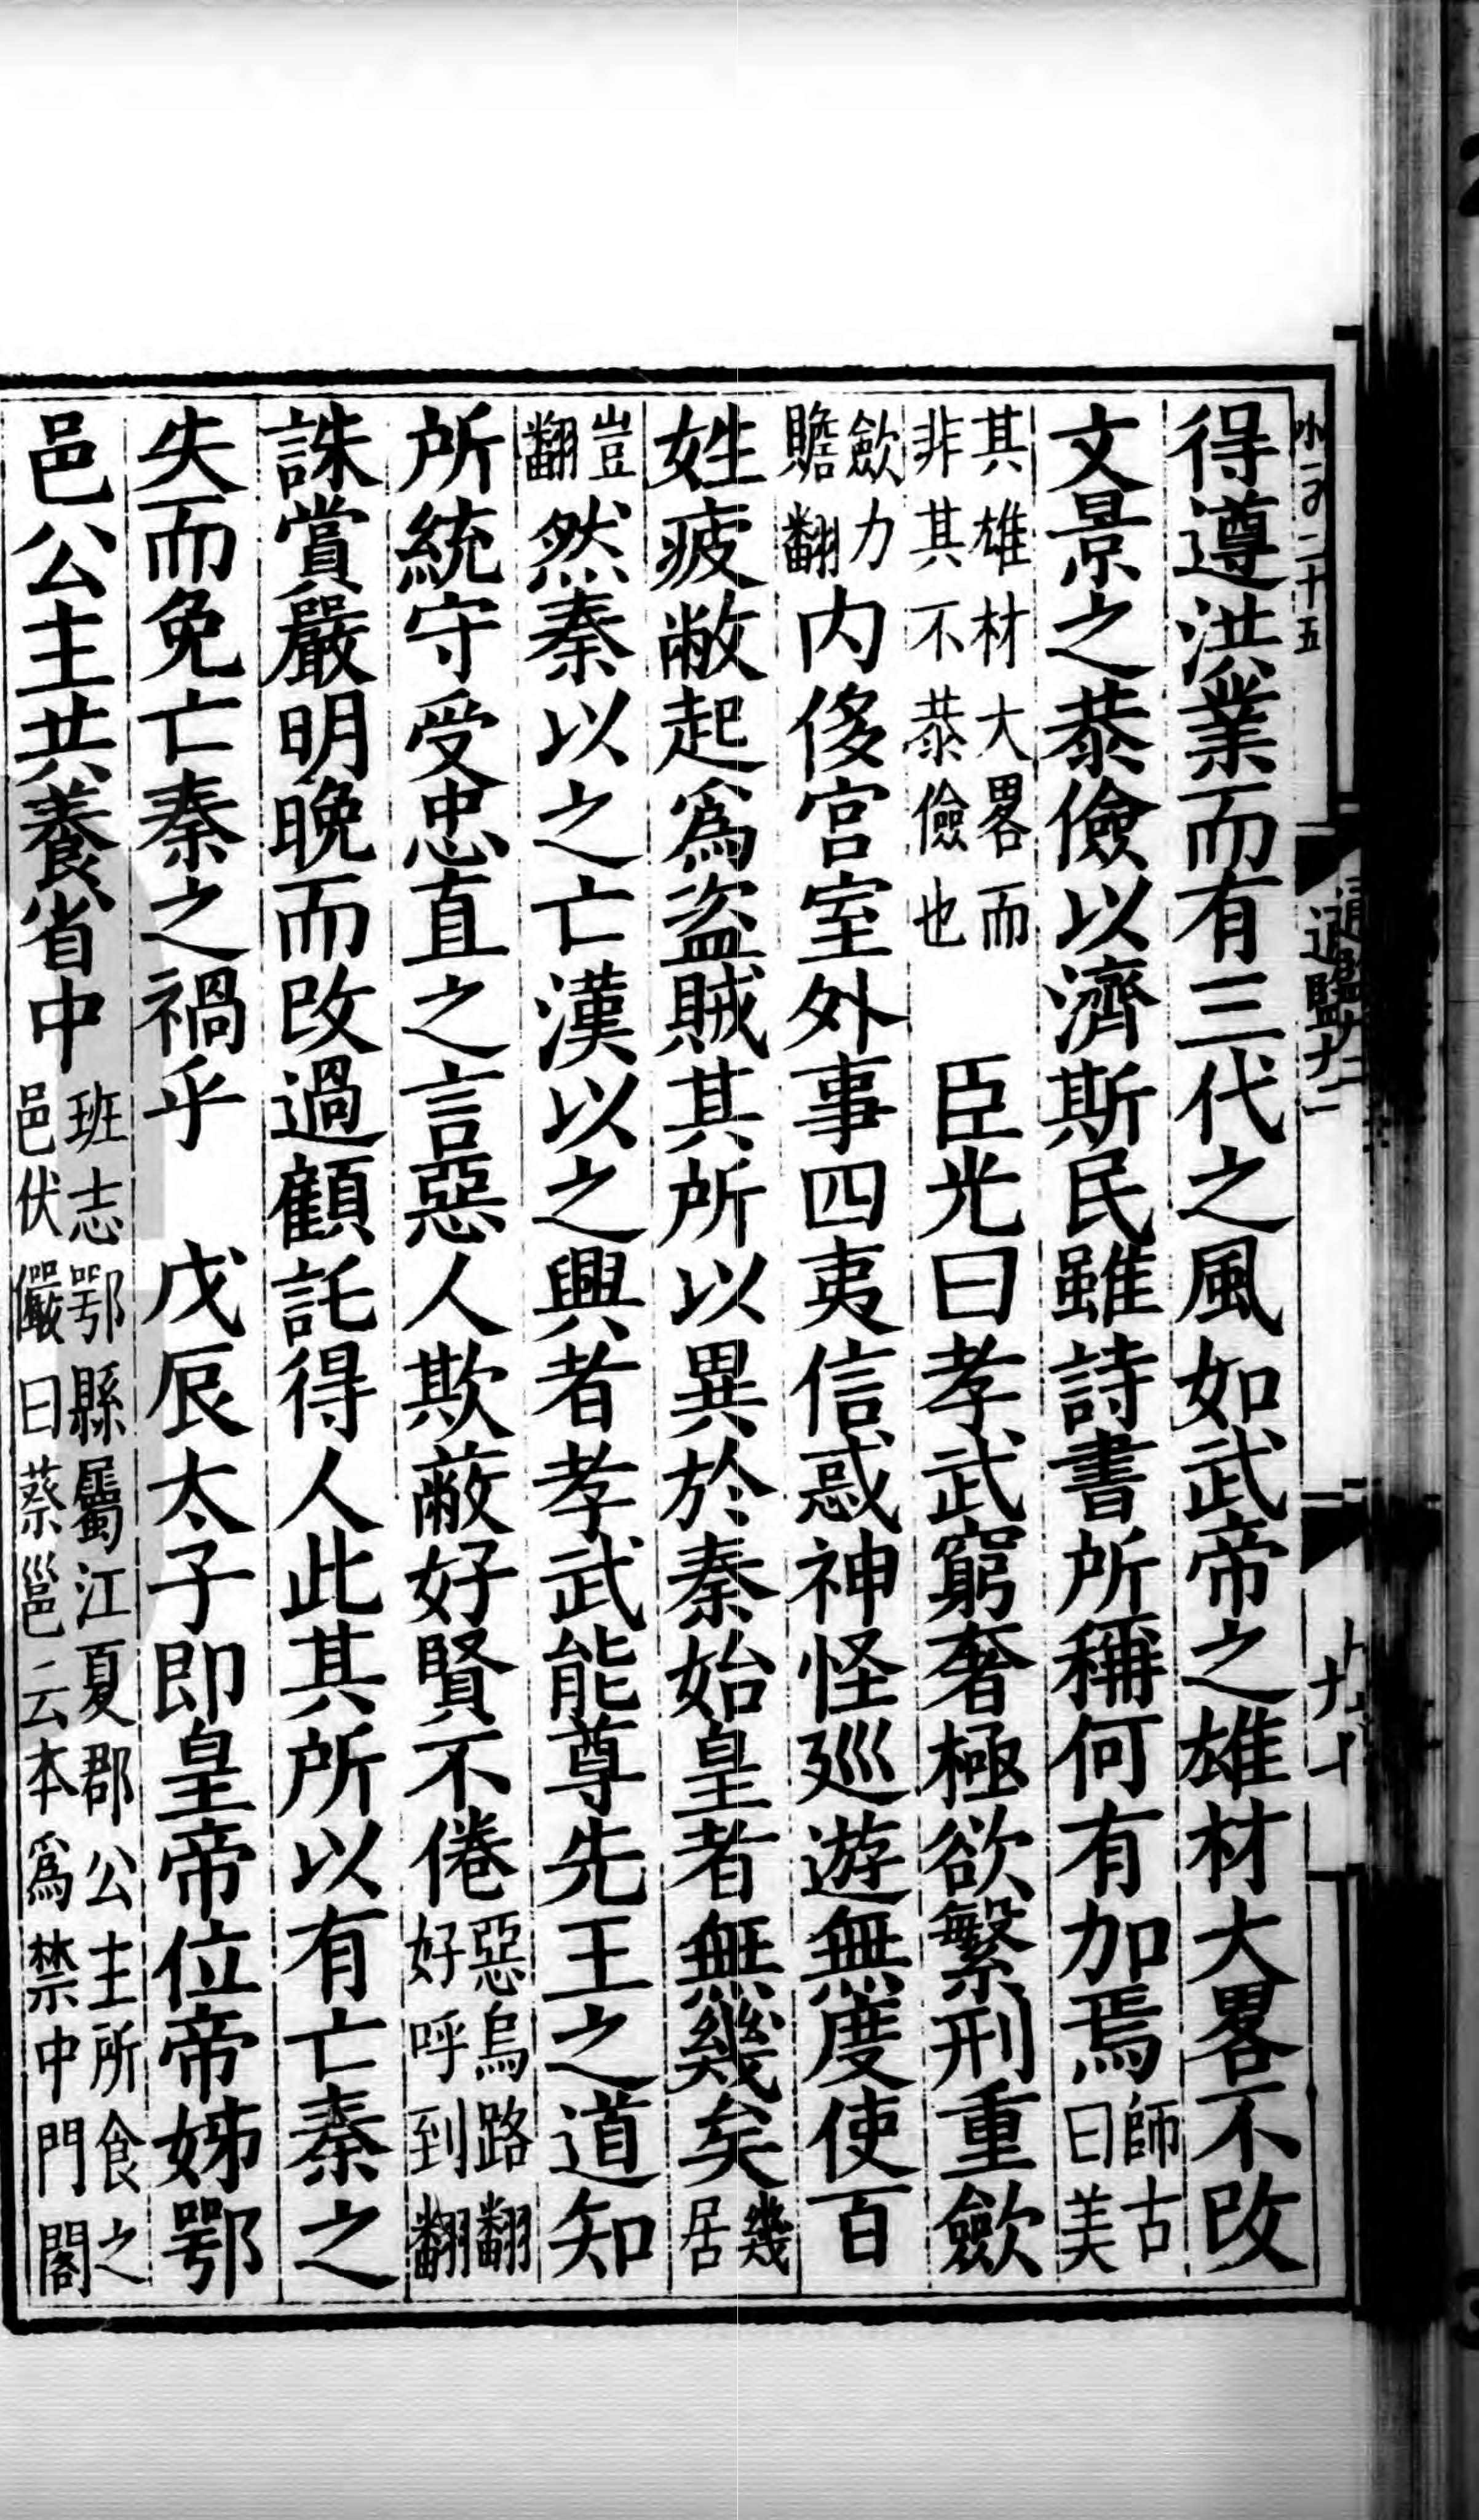 得遵洪業而有三代之風如武帝之雄材大畧不改
文景之恭儉以濟斯民雖詩書所稱何有加焉師古曰美
其雄材大畧而非其不恭儉也　臣光曰孝武窮奢極欲繁刑重斂
斂力贍翻内侈宫室外事四夷信惑神怪廵遊無度使百
姓疲敝起爲盜賊其所以異於秦始皇者無幾矣幾居
豈翻然秦以之亡漢以之興者孝武能尊先王之道知
所統守受忠直之言惡人欺蔽好賢不倦惡烏路翻好呼到翻
誅賞嚴明晚而改過顧託得人此其所以有亡秦之
失而免亡秦之禍乎　戊辰太子即皇帝位帝姊鄂
邑公主共養省中班志鄂縣屬江夏郡公主所食之邑伏儼曰蔡邕云本爲禁中門閤